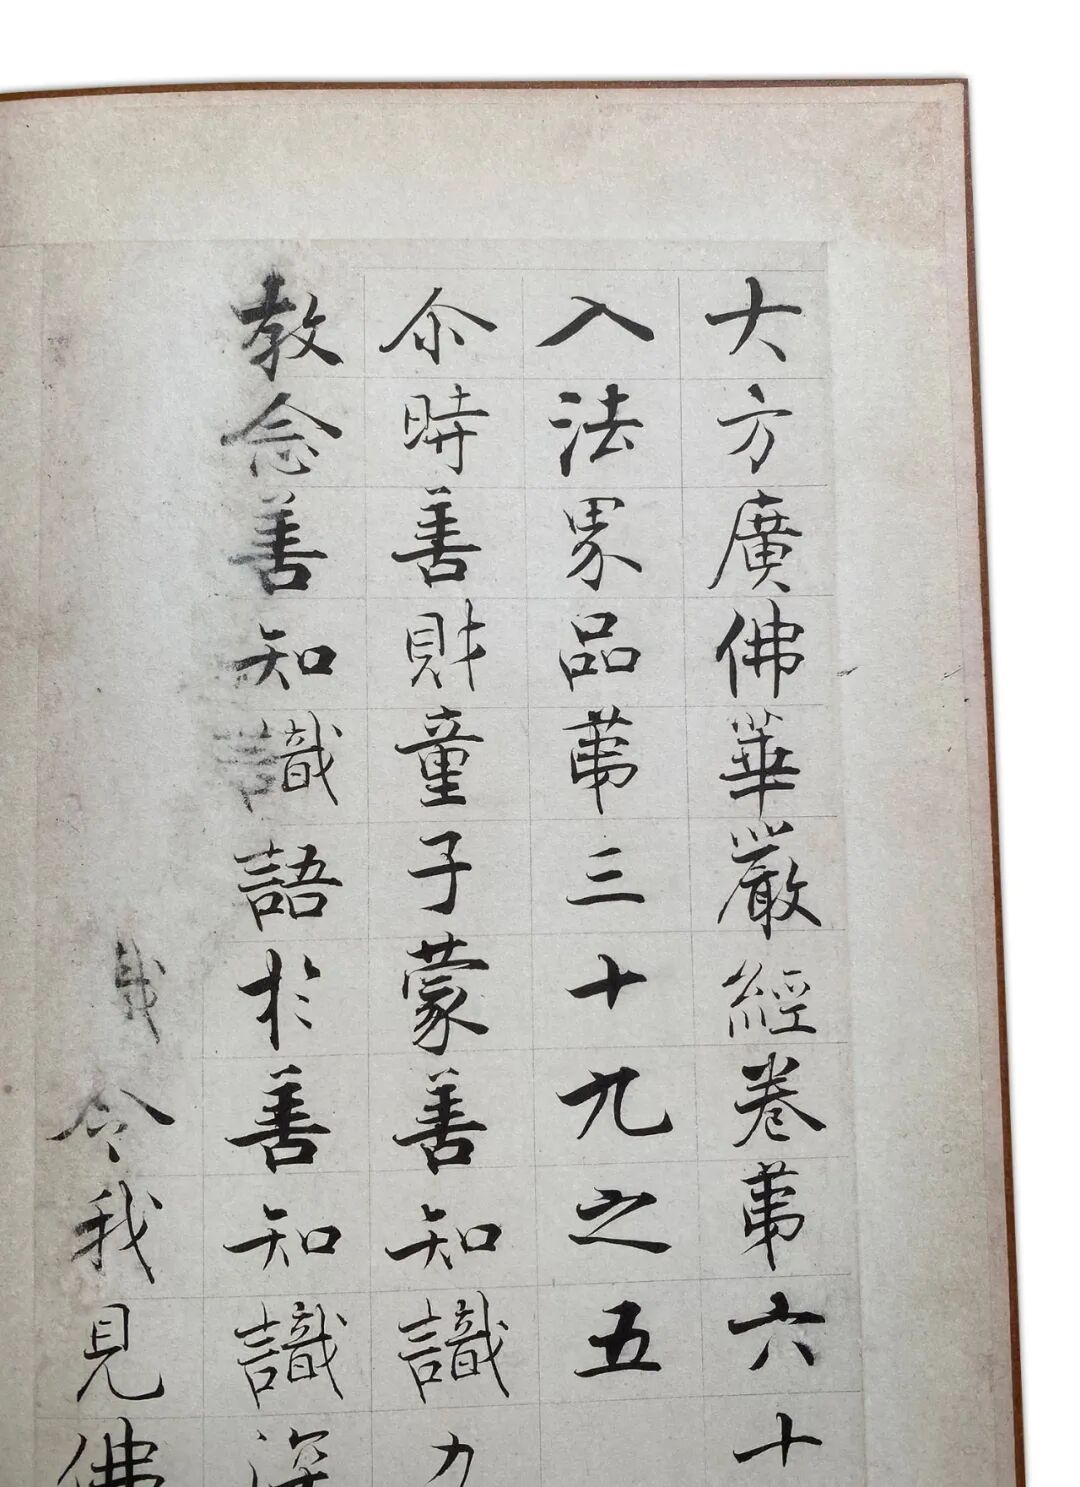 大方廣佛華嚴經卷第六十
入法界品第三十九之五
尒時善財童子蒙善知識力
教念善知識語於善知識深
我令我見佛